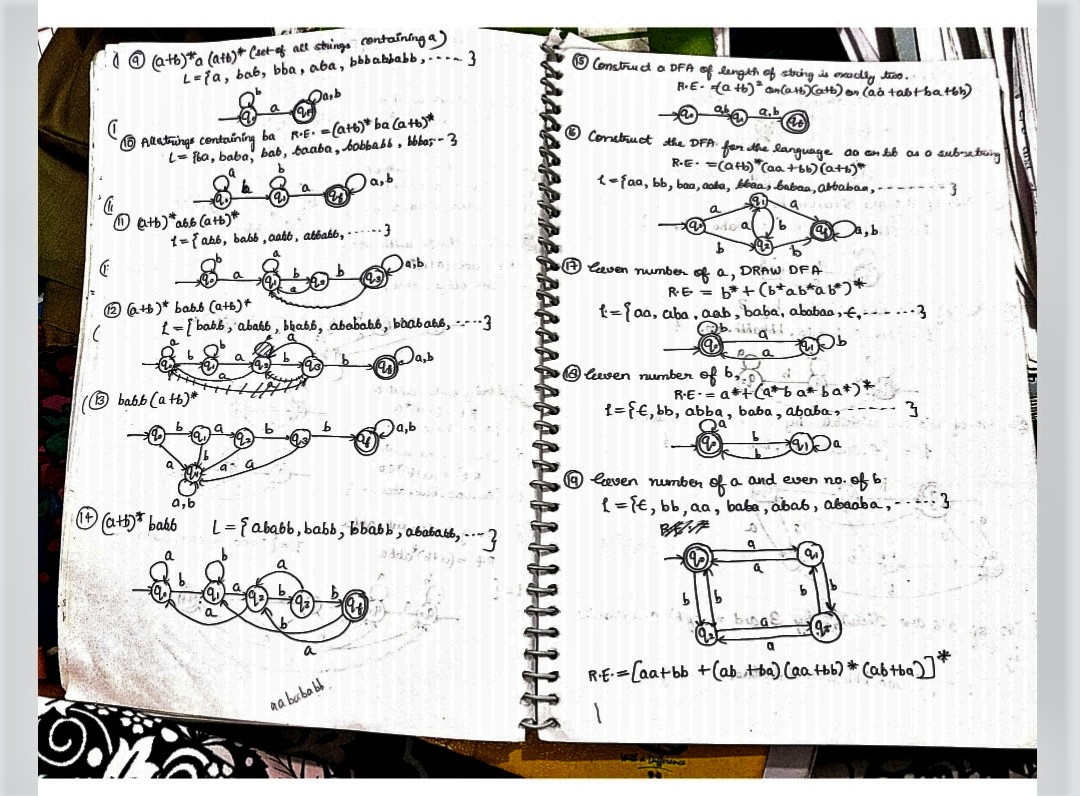 ⑨ (a+b)*a (a+b)* (set of all strings containing a)
L = {a, bab, bba, aba, bbbabbabb, ----- }
b a a,b
q₀ qf
⑩ All strings containing ba R.E. = (a+b)* ba (a+b)*
L = {ba, baba, bab, baaba, babbabb, bbba, -- }
a b b a a,b
q₀ q₁ qf
⑪ (a+b)*abb (a+b)*
L = {abb, babb, aabb, abbabb, ------ }
b a a b b a,b
q₀ q₁ q₂ q₃
a
⑫ (a+b)* babb (a+b)*
L = {babb, ababb, bbabb, abababb, baababb, ----- }
a b b a b a b a,b
q₀ q₁ q₂ q₃ qf
a
⑬ babb (a+b)*
q₀ b q₁ a q₂ b q₃ b qf a,b
a b a a
q₄
a,b
⑭ (a+b)* babb L = {ababb, babb, bbabb, abababb, --- }
a b b a a b b
q₀ q₁ q₂ q₃ qf
a b
a
aabababb
⑮ Construct a DFA of length of string is exactly two.
R.E. = (a+b)² or (a+b)(a+b) or (aa+ab+ba+bb)
q₀ a,b q₁ a,b qf
⑯ Construct the DFA for the language aa or bb as a sub-string
R.E. = (a+b)*(aa+bb)(a+b)*
L = {aa, bb, baa, aaba, bbaa, babaa, abbabaa, -------- }
a q₁ a
q₀ a b qf a,b
b q₂ b
⑰ Even number of a, DRAW DFA
R.E. = b* + (b*ab*ab*)*
L = {aa, aba, aab, baba, ababaa, ϵ, ------- }
b
q₀ a q₁ b
a
⑱ Even number of b,
R.E. = a* + (a*ba*ba*)*
L = {ϵ, bb, abba, baba, ababa, ------ }
a
q₀ b q₁ a
b
⑲ Even number of a and even no. of b
L = {ϵ, bb, aa, baba, abab, abaaba, ----- }
q₀ a q₁
a
b b b b
q₂ a q₃
a
R.E. = [aa+bb + (ab+ba)(aa+bb)*(ab+ba)]*